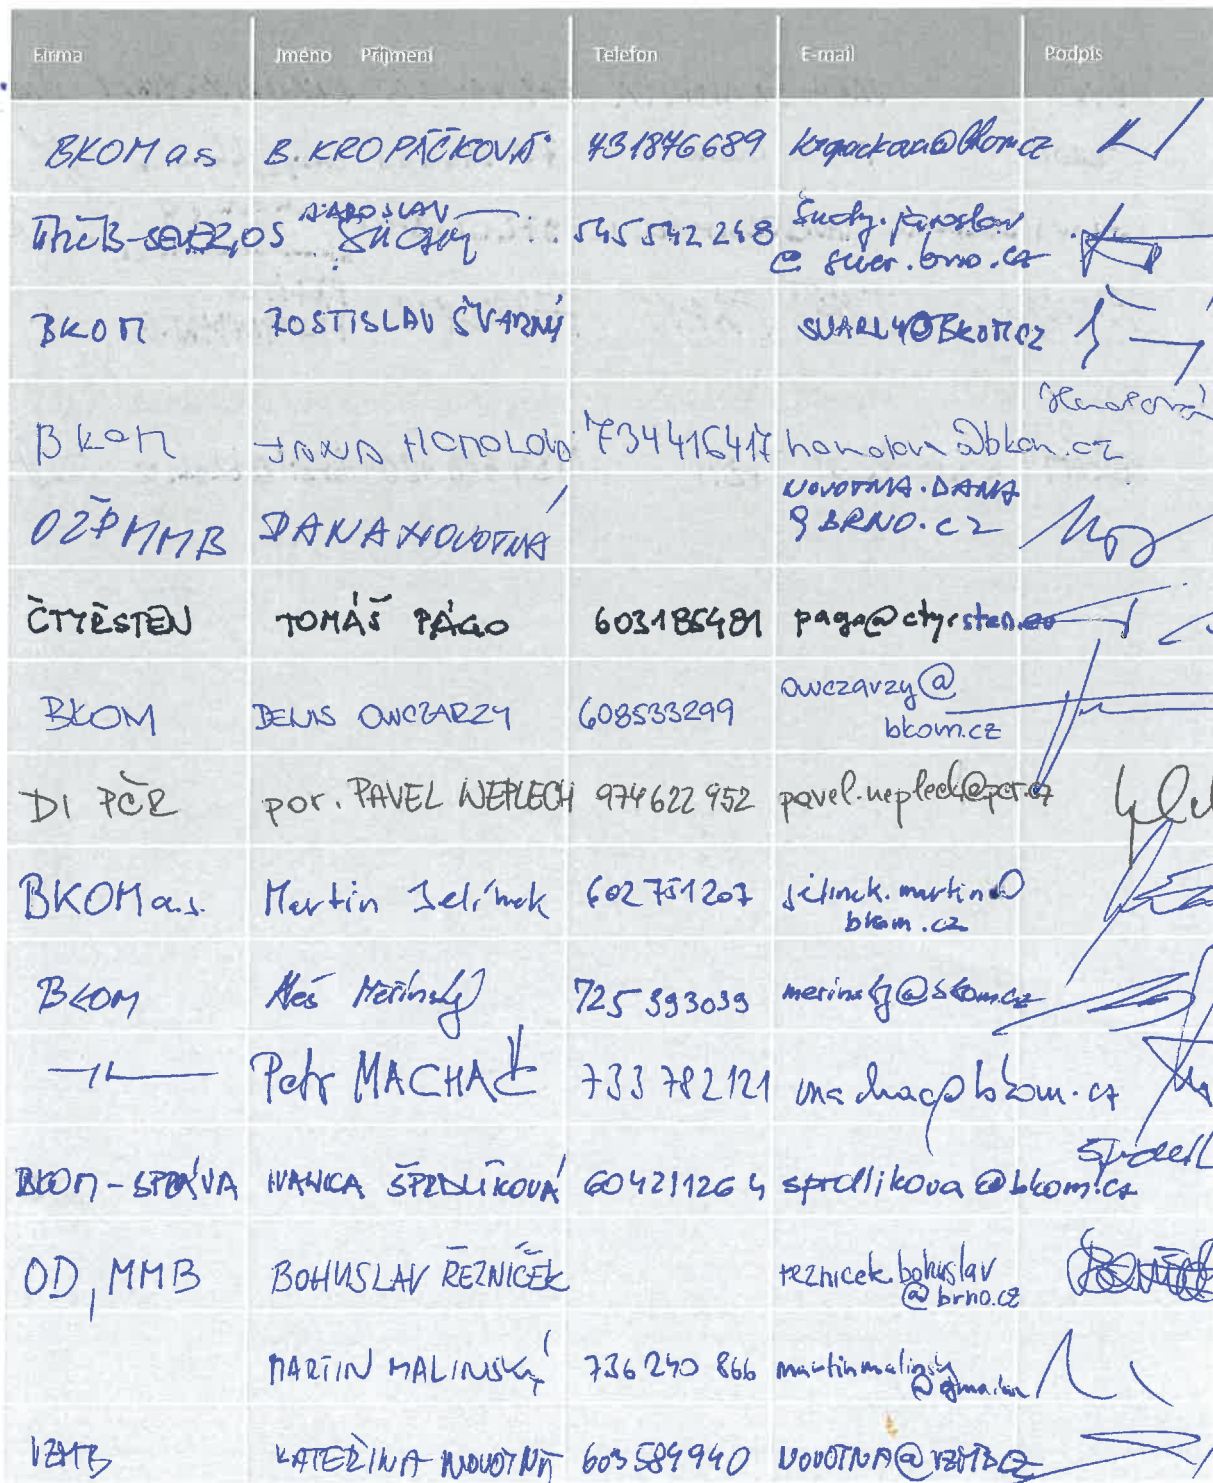 Firma Jméno Příjmení Telefon E-mail Podpis
BKOM a.s B. KROPÁČKOVÁ 731876689 kropackova@bkom.cz
JAROSLAV
ÚMČB-SEVER, OS Šuchý 545 542 248 Suchy.jaroslav
@ sever.brno.cz
BKOM ROSTISLAV ŠVARNÝ SVARNY@BKOM.CZ
BKOM JANA HOMOLOVÁ 734416417 homolova@bkom.cz
OŽP MMB DANA NOVOTNÁ NOVOTNA.DANA
@ BRNO.CZ
ČTYŘSTEN TOMÁŠ PÁGO 603185481 pago@ctyrsten.eu
BKOM DENIS OWCZARZY 608533299 owczarzy@
bkom.cz
DI PČR por. PAVEL NEPLECH 974622952 pavel.neplech@pcr.cz
BKOM a.s. Martin Jelínek 602751207 jelinek.martin@
bkom.cz
BKOM Aleš Meřínský 725 393039 merinsky@bkom.cz
-//- Petr MACHAČ 733 782121 machac@bkom.cz
BKOM-SPRÁVA IVANKA ŠPRDLÍKOVÁ 604211264 sprdlikova@bkom.cz
OD, MMB BOHUSLAV ŘEZNÍČEK reznicek.bohuslav
@brno.cz
MARTIN MALINSKÝ 736 240 866 martinmalinsky
@gmail.com
VZMB KATEŘINA NOVOTNÁ 603584940 NOVOTNA@VZMB.CZ